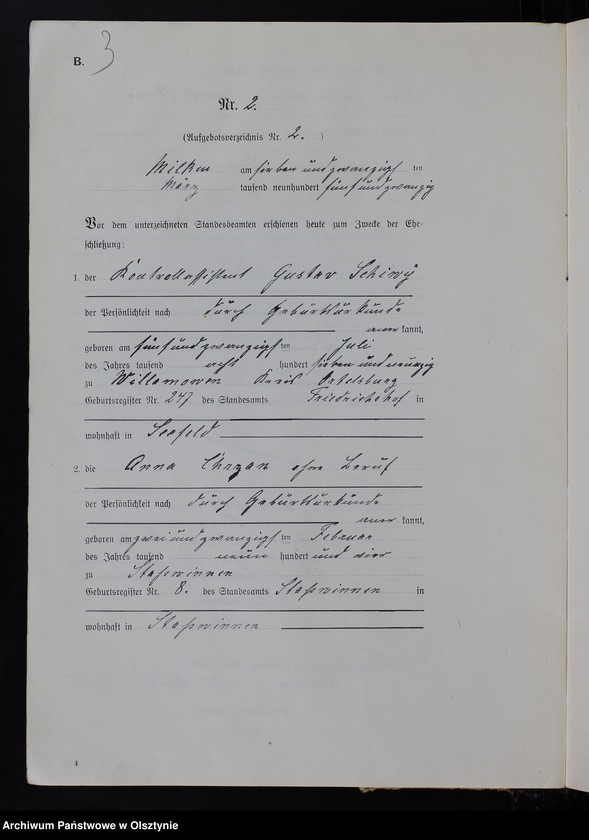 B. 3
Nr. 2.
(Aufgebotsverzeichnis Nr. 2. )
Milken am sieben und zwanzigsten
März tausend neunhundert fünf und zwanzig
Vor dem unterzeichneten Standesbeamten erschienen heute zum Zwecke der Ehe-
schließung:
1. der Kontrollassistent Gustav Schiwy
der Persönlichkeit nach durch Geburtsurkunde
anerkannt,
geboren am fünf und zwanzigsten Juli
des Jahres tausend acht hundert sieben und neunzig
zu Willamowen Kreis Ortelsburg
Geburtsregister Nr. 247 des Standesamts Friedrichshof in
wohnhaft in Seefeld
2. die Anna Chrzan ohne Beruf
der Persönlichkeit nach durch Geburtsurkunde
anerkannt,
geboren am zwei und zwanzigsten Februar
des Jahres tausend neun hundert und vier
zu Staswinnen
Geburtsregister Nr. 8. des Standesamts Staswinnen in
wohnhaft in Staswinnen
4
Archiwum Państwowe w Olsztynie